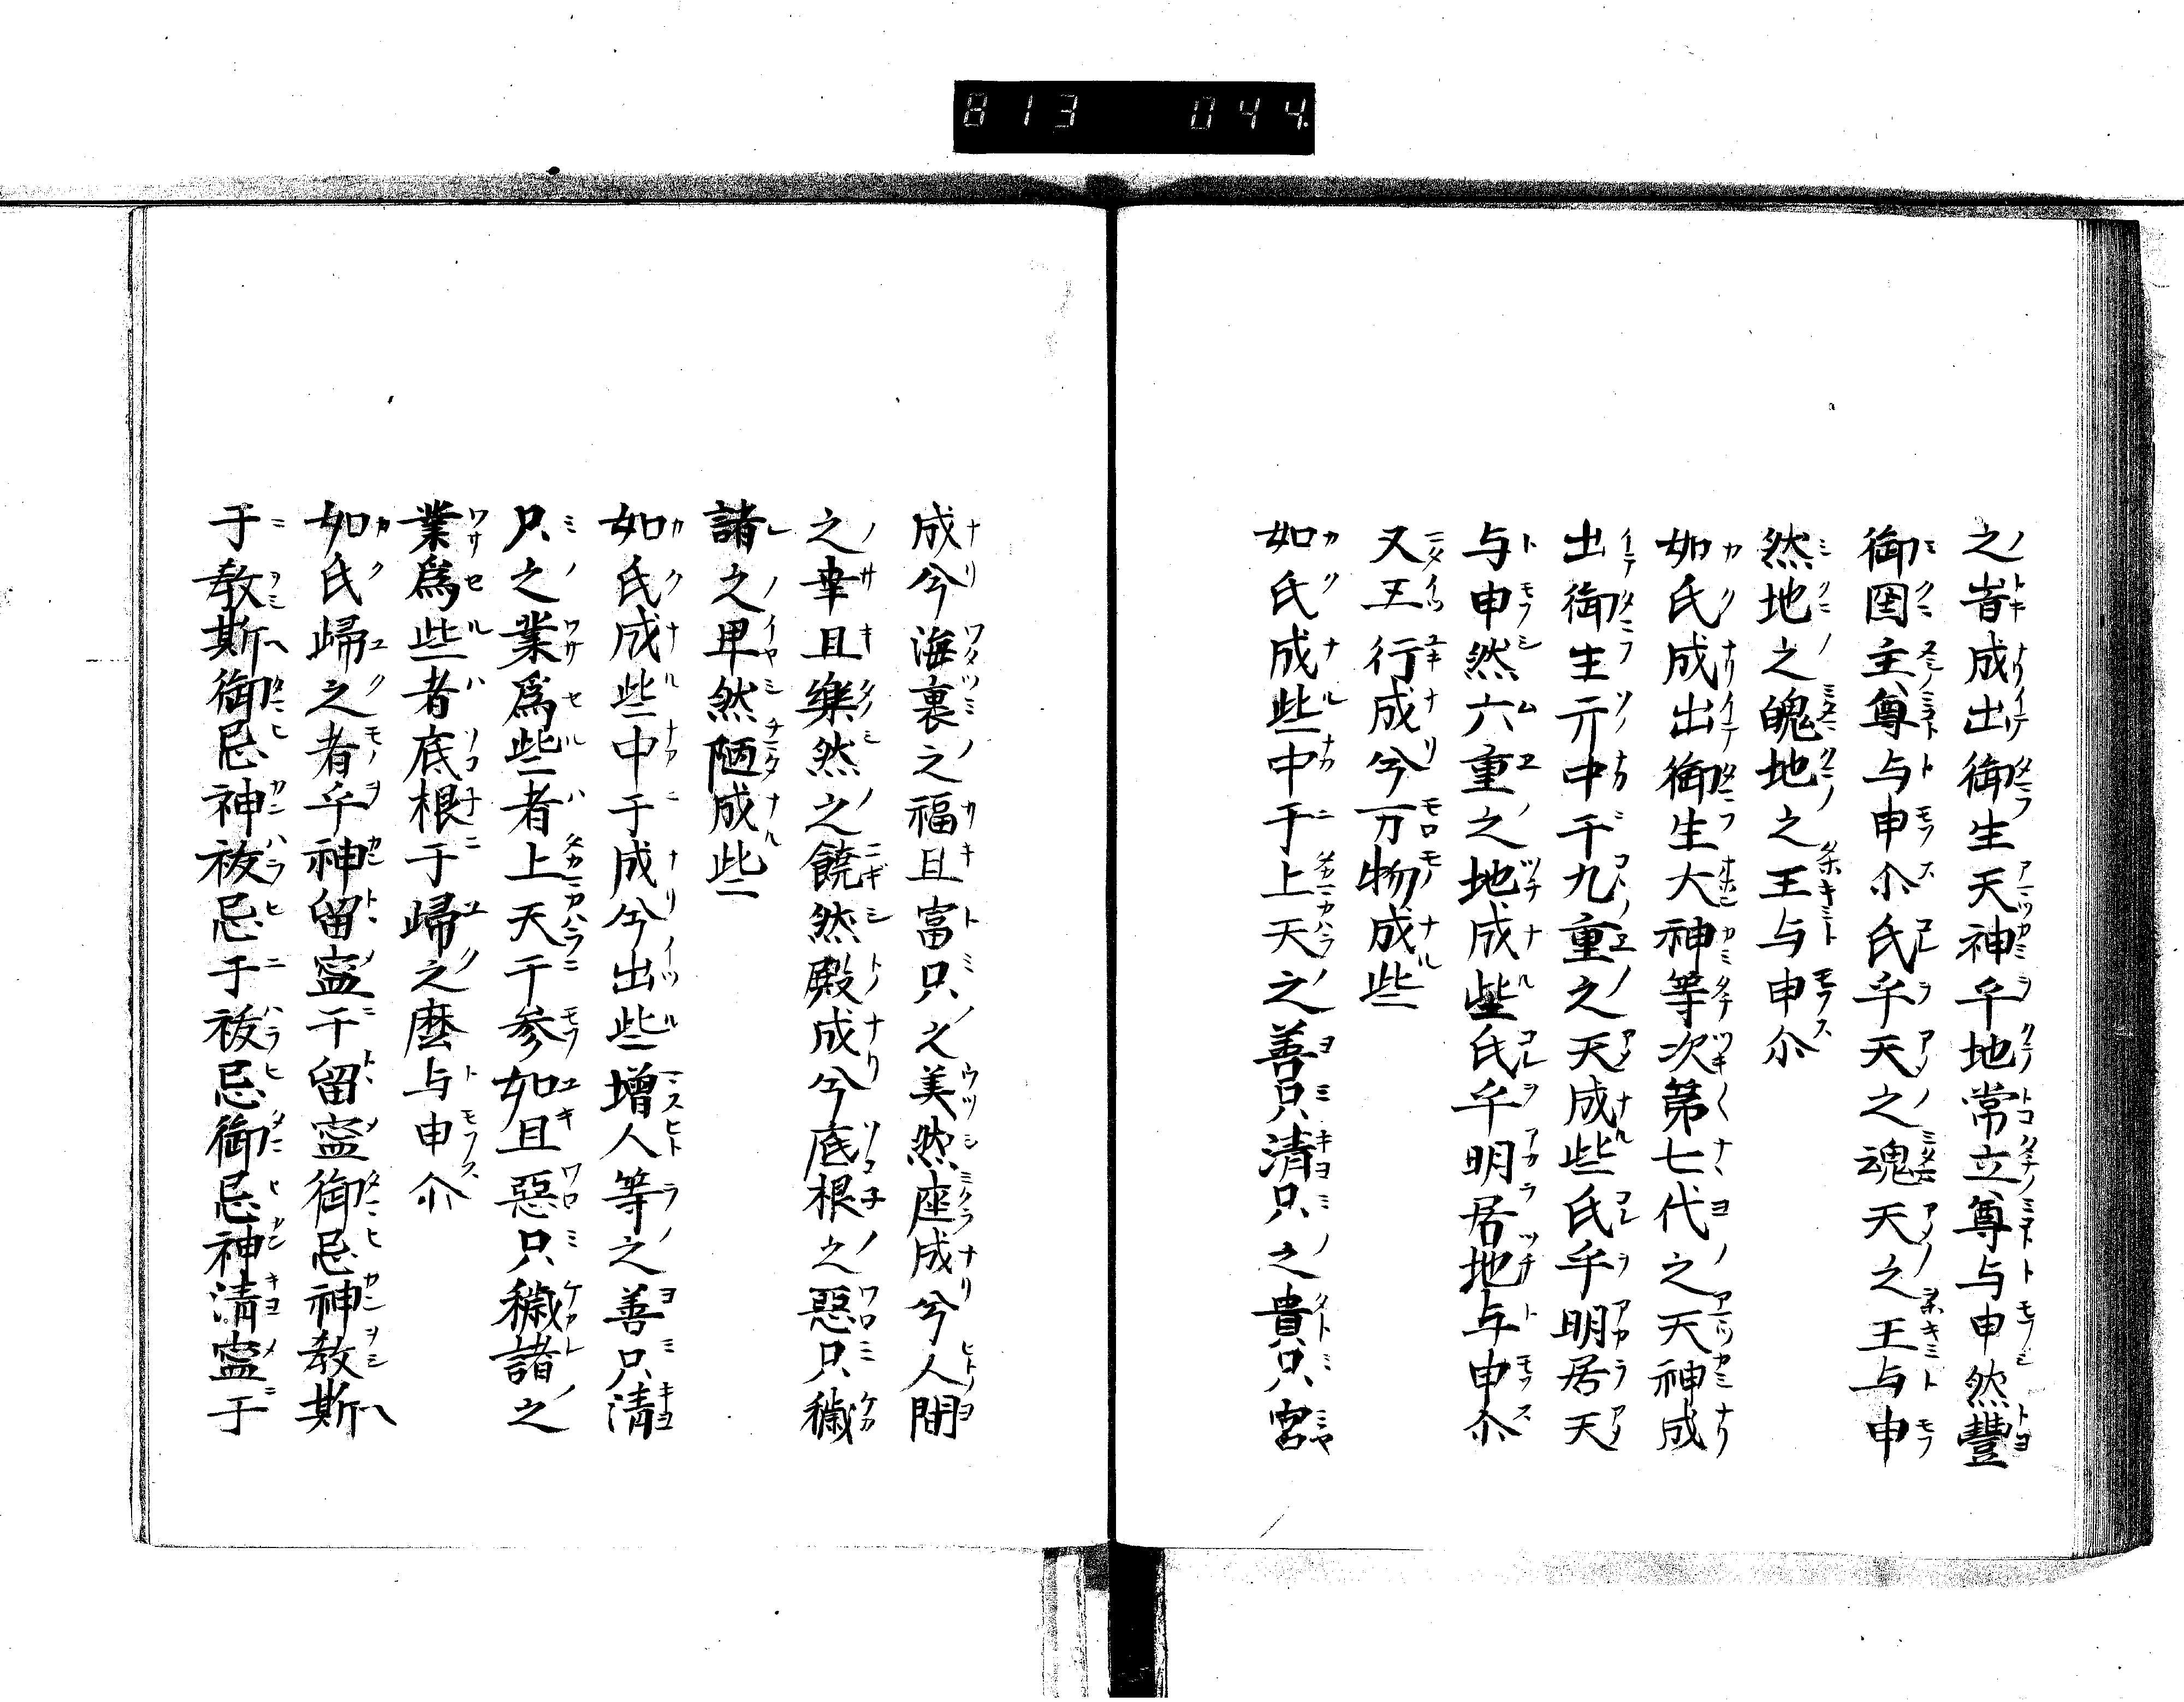 813 044.
之旹成出御生天神乎地常立尊与申然豐
御圀主尊与申尒氏乎天之魂天之王与申
然地之魄地之王与申尒
如氏成出御生大神等次第七代之天神成
出御生亓中于九重之天成些氏乎明居天
与申然六重之地成些氏乎明居地与申尒
又五行成兮万物成些
如氏成些中于上天之善只清只之貴只宮
成兮海裏之福且富只之美然座成兮人間
之幸且樂然之饒然殿成兮底根之惡只穢
諸之卑然陋成些
如氏成些中于成兮出些增人等之善只清
只之業爲些者上天于参如且惡只穢諸之
業爲些者底根于歸之麽与申尒
如氏歸之者乎神留寍于留寍御忌神教斯
于教斯御忌神祓忌于祓忌御忌神清寍于